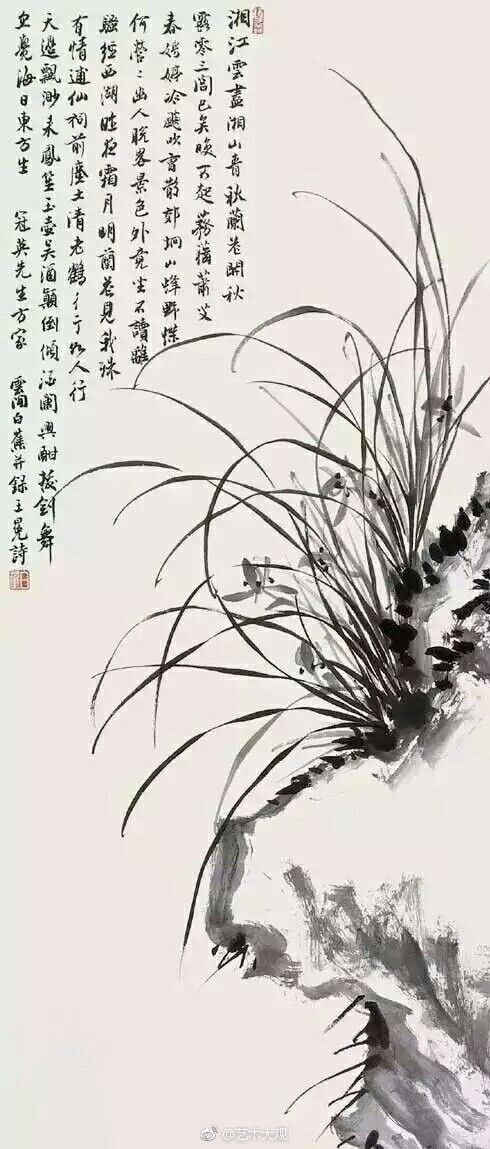 湘江雲盡湘山青秋蘭花開秋
露零三閭已矣喚不起蕭艾
春娉婷冷飈吹香散郊坰山蜂野蝶
何營〻幽人脫畧景色外竟坐不讀離
騷經西湖昨夜霜月明蘭花見我殊
有情逋仙祠前塵土清老鶴彳亍如人行
天邊飄渺来鳳笙玉壺酒顛倒傾酒闌興酣拔劍舞
忽覺海日東方生 冠英先生方家 雲間白蕉并錄王冕詩
@艺术大观